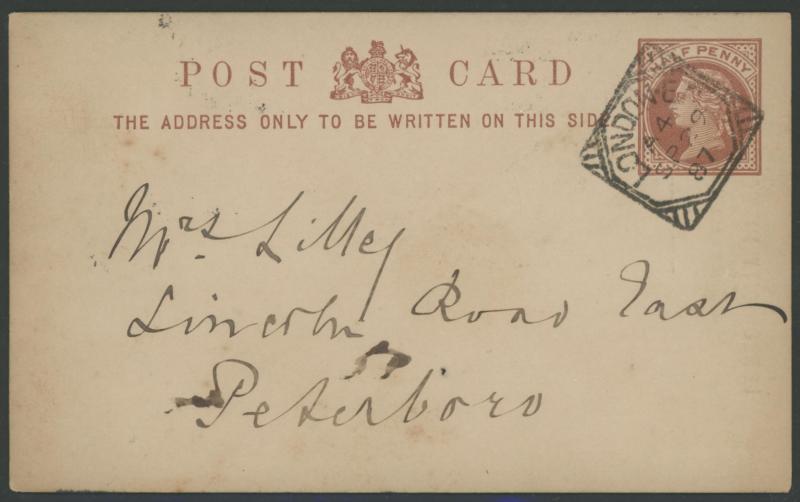 POST CARD
THE ADDRESS ONLY TO BE WRITTEN ON THIS SIDE
HALF PENNY
LONDON E
87
Mrs Lilley
Lincoln Road East
Peterboro